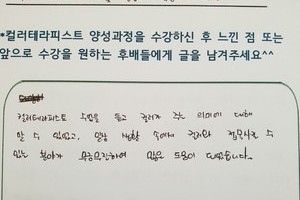 *컬러테라피스트 양성과정을 수강하신 후 느낀 점 또는
앞으로 수강을 원하는 후배들에게 글을 남겨주세요^^
컬러테라피스트 수업을 듣고 컬러가 주는 의미에 대해
알 수 있었고, 일상 생활 속에서 컬러와 접목시킬 수
있는 분야가 무궁무진하여 많은 도움이 되었습니다.